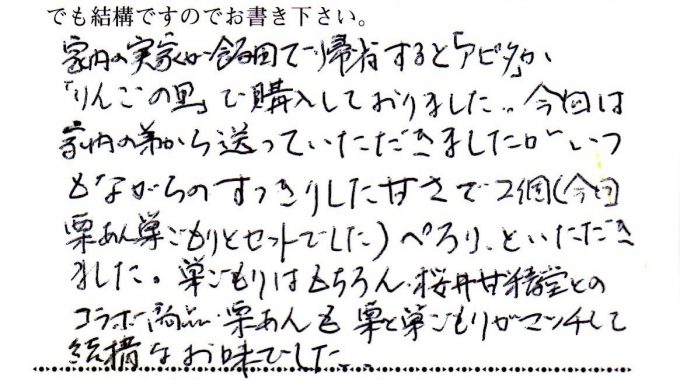 でも結構ですのでお書き下さい。
家内の実家が飯田で帰省すると「アピタ」か
「りんごの里」で購入しておりました。今回は
家内の弟から送っていただきましたがいつ
もながらのすっきりした甘さで2個(今回
栗あん巣ごもりとセットでした)ぺろり、といただき
ました。巣ごもりはもちろん、桜井甘精堂との
コラボ商品・栗あんも栗と巣ごもりがマッチして
結構なお味でした…